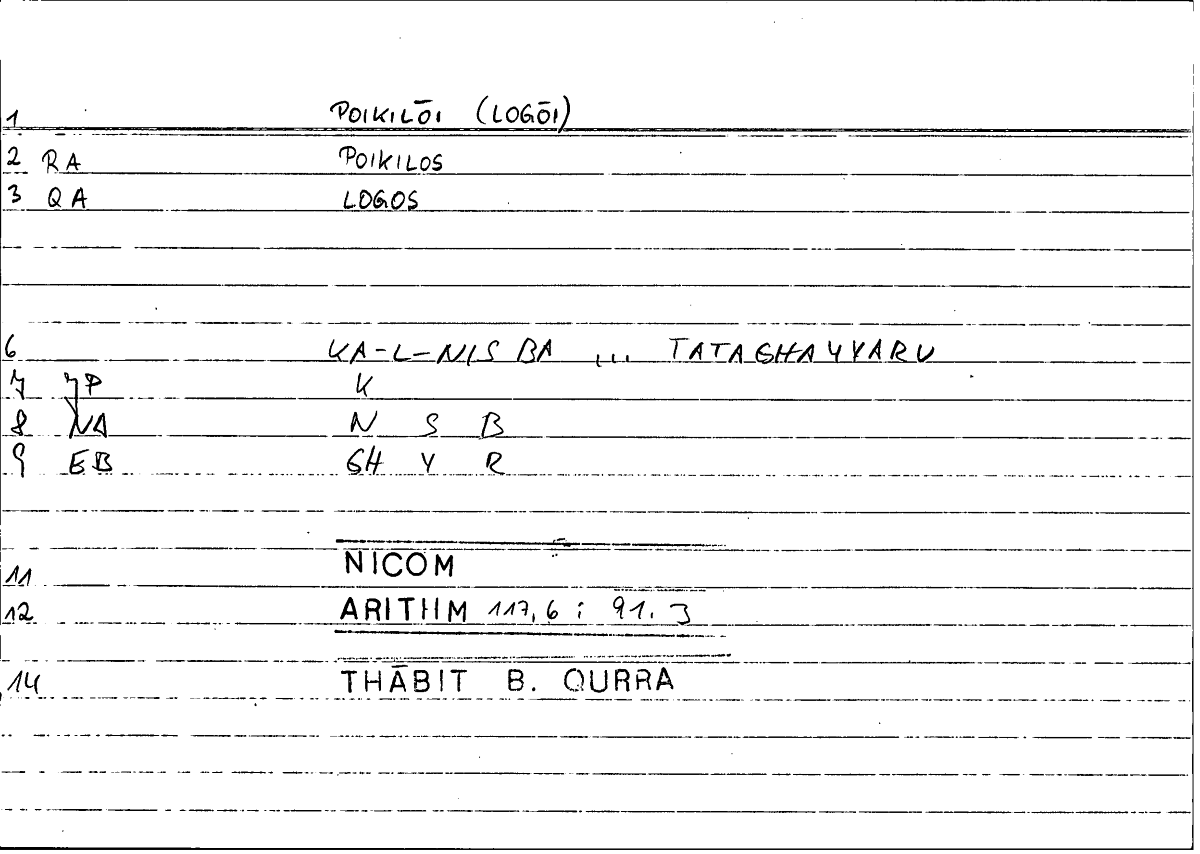 1 POIKILŌI (LOGŌI)
2 RA POIKILOS
3 QA LOGOS
6 KA-L-NISBA ... TATAGHAYYARU
7 JP K
8 NA N S B
9 EB GH Y R
11 NICOM
12 ARITHM 117,6 ; 91. 3
14 THĀBIT B. QURRA